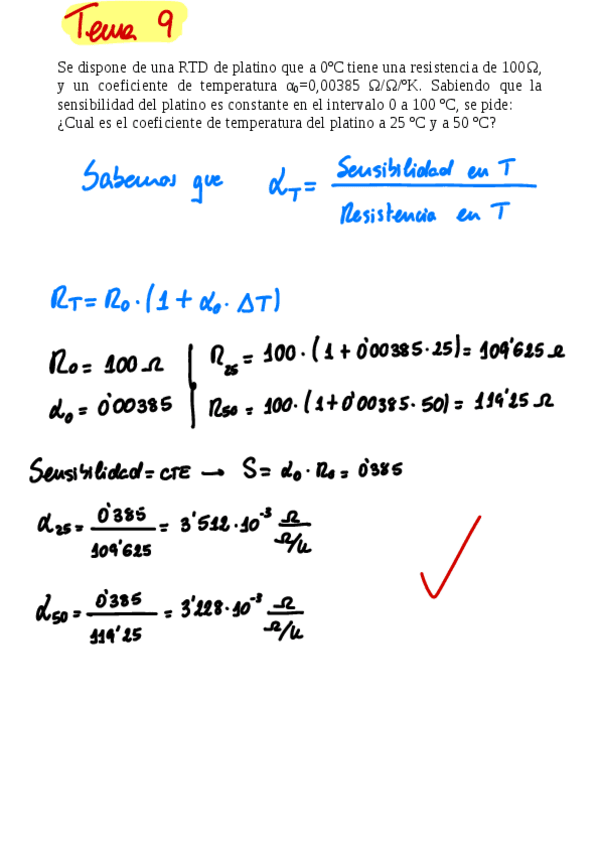 Tema 9
Se dispone de una RTD de platino que a 0ºC tiene una resistencia de 100Ω,
y un coeficiente de temperatura α₀=0,00385 Ω/Ω/ºK. Sabiendo que la
sensibilidad del platino es constante en el intervalo 0 a 100 ºC, se pide:
¿Cual es el coeficiente de temperatura del platino a 25 ºC y a 50 ºC?
Sabemos que α_T = Sensibilidad en T / Resistencia en T
R_T = R₀ · (1 + α₀ · ΔT)
R₀ = 100 Ω | R₂₅ = 100 · (1 + 0'00385 · 25) = 109'625 Ω
α₀ = 0'00385 | R₅₀ = 100 · (1 + 0'00385 · 50) = 119'25 Ω
Sensibilidad = CTE → S = α₀ · R₀ = 0'385
α₂₅ = 0'385 / 109'625 = 3'512 · 10⁻³ Ω / Ω/K
α₅₀ = 0'385 / 119'25 = 3'228 · 10⁻³ Ω / Ω/K